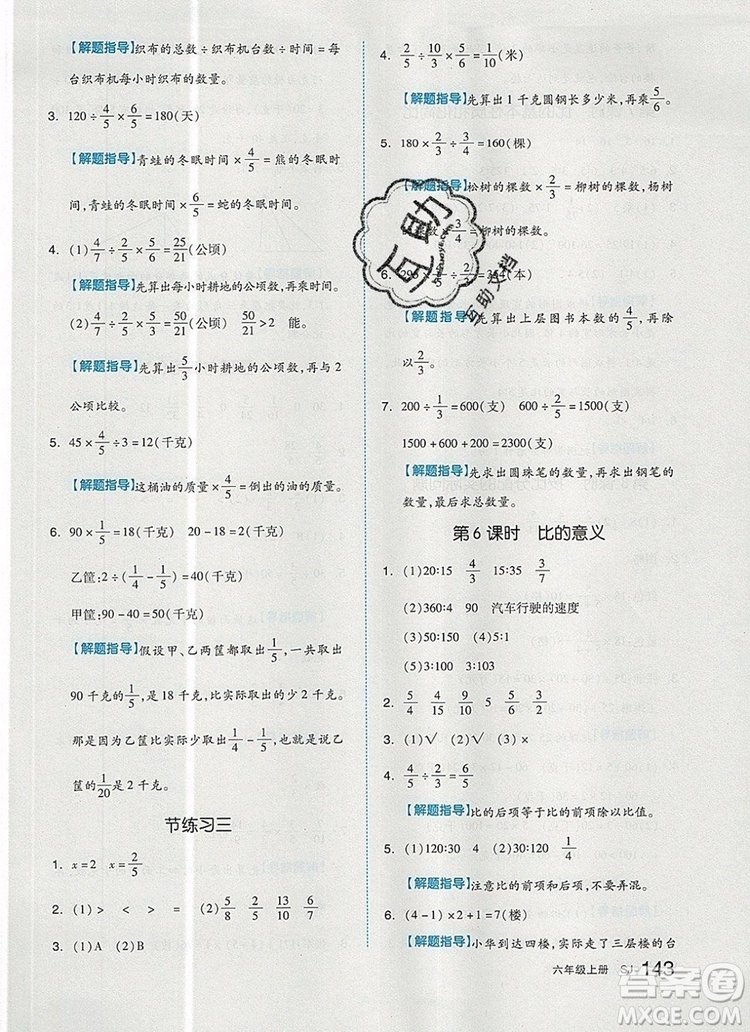 【解题指导】织布的总数÷织布机台数÷时间=每
台织布机每小时织布的数量。
3. 120÷4/5×6/5=180(天)
【解题指导】青蛙的冬眠时间×4/5=熊的冬眠时
间,青蛙的冬眠时间×6/5=蛇的冬眠时间。
4. (1)4/7÷4/5×5/3=25/21(公顷)
【解题指导】先算出每小时耕地的公顷数,再乘时间。
(2)4/7÷4/5÷3/10=50/21(公顷) 50/21>2 能。
【解题指导】先算出5/3小时耕地的公顷数,再与2
公顷比较。
5. 45×4/5÷3=12(千克)
【解题指导】这桶油的质量×4/5=倒出的油的质量。
6. 90×1/5=18(千克) 20-18=2(千克)
乙筐:2÷(1/4-1/5)=40(千克)
甲筐:90-40=50(千克)
【解题指导】假设甲、乙两筐都取出1/5,一共取出
90千克的1/5,是18千克,比实际取出的少2千克。
原因是因为乙筐比实际少取出1/4-1/5,就是乙
筐的1/20是2千克。
节练习三
1. x=2 x=2/5
2. (1)> < > = (2)5/8 2/5 13/10 6/7
3. (1)A (2)B
4. 2/5÷10/3×5/6=1/10(米)
【解题指导】先算出1千克圆钢长多少米,再乘5/6。
5. 180×2/3÷3/4=160(棵)
【解题指导】松树的棵数×2/3=柳树的棵数,杨树
棵数×3/4=柳树的棵数。
6. 295×4/5÷2/3=354(本)
【解题指导】先算出上层图书本数的4/5,再除
以2/3。
7. 200÷1/3=600(支) 600÷2/5=1500(支)
1500+600+200=2300(支)
【解题指导】先求出圆珠笔的数量,再求出钢笔的
数量,最后求总数量。
第6课时 比的意义
1. (1)20:15 4/3 15:35 3/7
(2)360:4 90 汽车行驶的速度
(3)50:150 (4)5:1
(5)3:100
2. 5/4 4/9 9/15 5 5/6 3/2
3. (1)√ (2)√ (3)×
4. 4/5÷3/2=8/15
【解题指导】比的后项等于比的前项除以比值。
5. (1)30:10 (2)30:120 1/4
【解题指导】注意比的前项和后项,不要弄混。
6. (4-1)×2+1=7(楼)
【解题指导】小华到达四楼,实际走了三层楼的台
六年级上册 SJ 143
互助
互助文档
答案圈
MXQE.COM